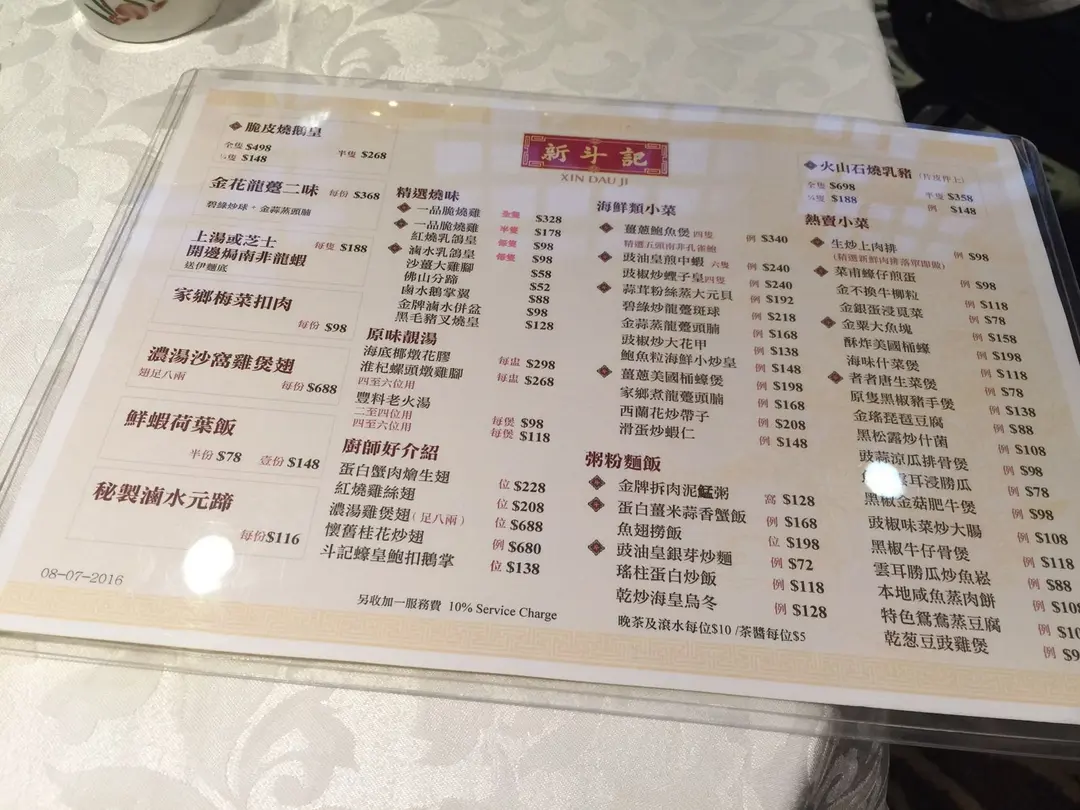 脆皮燒鵝皇
全隻 $498
¼隻 $148 半隻 $268
金花龍躉二味 每份 $368
碧綠炒球・金蒜蒸頭腩
上湯或芝士 每隻 $188
開邊焗南非龍蝦
送伊麵底
家鄉梅菜扣肉
每份 $98
濃湯沙窩雞煲翅
翅足八兩 每份 $688
鮮蝦荷葉飯
半份 $78 壹份 $148
秘製滷水元蹄
每份$116
08-07-2016
新斗記
XIN DAU JI
精選燒味
一品脆燒雞 全隻 $328
一品脆燒雞 半隻 $178
紅燒乳鴿皇 每隻 $98
滷水乳鴿皇 每隻 $98
沙薑大雞腳 $58
佛山分蹄 $52
鹵水鵝掌翼 $88
金牌滷水併盆 $98
黑毛豬叉燒皇 $128
原味靚湯
海底椰燉花膠 每盅 $298
淮杞螺頭燉雞腳 每盅 $268
四至六位用
豐料老火湯
二至四位用 每煲 $98
四至六位用 每煲 $118
廚師好介紹
蛋白蟹肉燴生翅 位 $228
紅燒雞絲翅 位 $208
濃湯雞煲翅(足八兩) 位 $688
懷舊桂花炒翅 例 $680
斗記蠔皇鮑扣鵝掌 位 $138
另收加一服務費 10% Service Charge
海鮮類小菜
薑蔥鮑魚煲 四隻 例 $340
精選五頭南非孔雀鮑
豉油皇煎中蝦 六隻 例 $240
豉椒炒蟶子皇 四隻 例 $240
蒜茸粉絲蒸大元貝 例 $192
碧綠炒龍躉斑球 例 $218
金蒜蒸龍躉頭腩 例 $168
豉椒炒大花甲 例 $138
鮑魚粒海鮮小炒皇 例 $148
薑蔥美國桶蠔煲 例 $198
家鄉煮龍躉頭腩 例 $168
西蘭花炒帶子 例 $208
滑蛋炒蝦仁 例 $148
粥粉麵飯
金牌拆肉泥鯭粥 窩 $128
蛋白薑米蒜香蟹飯 例 $168
魚翅撈飯 位 $198
豉油皇銀芽炒麵 例 $72
瑤柱蛋白炒飯 例 $118
乾炒海皇烏冬 例 $128
晚茶及滾水每位$10 /茶醬每位$5
火山石燒乳豬 (件皮件上)
全隻 $698 半隻 $358
¼隻 $188 例 $148
熱賣小菜
生炒上肉排 例 $98
(精選新鮮肉排落單即做)
菜甫蠔仔煎蛋 例 $98
金不換牛柳粒 例 $118
金銀蛋浸莧菜 例 $78
金粟大魚塊 例 $158
酥炸美國桶蠔 例 $198
海味什菜煲 例 $118
者者唐生菜煲 例 $78
原隻黑椒豬手煲 例 $138
金瑤琵琶豆腐 例 $88
黑松露炒什菌 例 $108
豉蒜涼瓜排骨煲 例 $98
雲耳浸勝瓜 例 $78
黑椒金菇肥牛煲 例 $98
豉椒味菜炒大腸 例 $108
黑椒牛仔骨煲 例 $118
雲耳勝瓜炒魚崧 例 $88
本地咸魚蒸肉餅 例 $108
特色鴛鴦蒸豆腐 例 $10
乾葱豆豉雞煲 例 $9